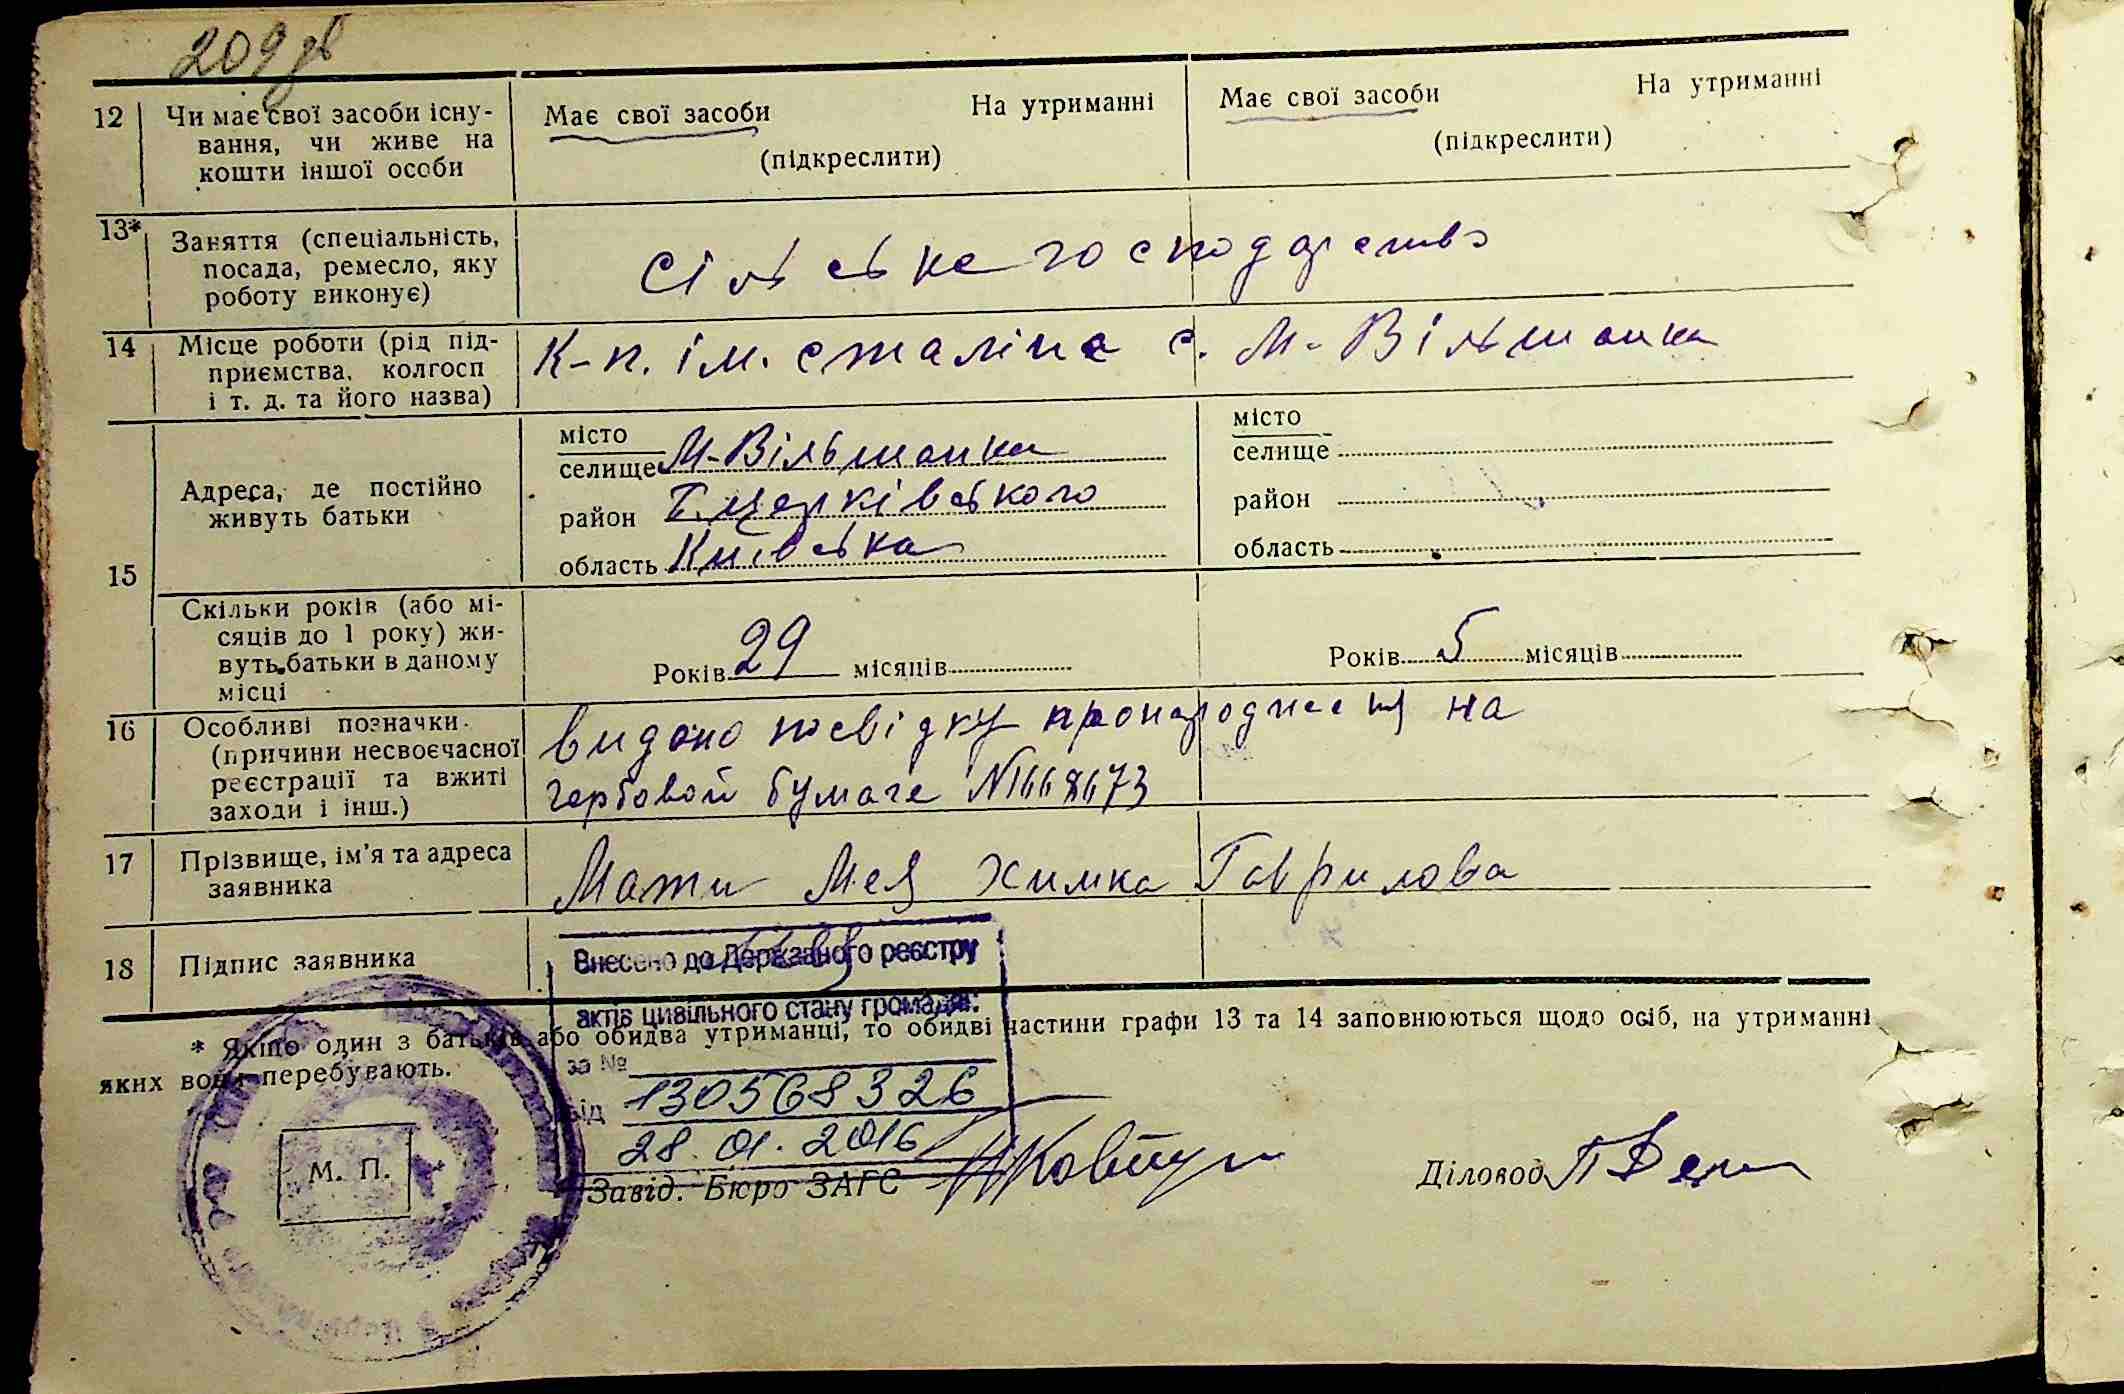 209 зв
12 Чи має свої засоби існу- Має свої засоби На утриманні Має свої засоби На утриманні
вання, чи живе на (підкреслити) (підкреслити)
кошти іншої особи
13* Заняття (спеціальність, сільське господарство
посада, ремесло, яку
роботу виконує)
14 Місце роботи (рід під- К-п. ім. сталіна с. М-Вільшанка
приємства, колгосп
і т. д. та його назва)
15 Адреса, де постійно
живуть батьки
місто
селище М-Вільшанка
район Б.церківського
область Київська
місто
селище
район
область
Скільки років (або мі-
сяців до 1 року) жи-
вуть батьки в даному
місці
Років 29 місяців Років 5 місяців
16 Особливі позначки видано посвідку про народження на
(причини несвоєчасної гербовой бумаге №
реєстрації та вжиті
заходи і інш.)
17 Прізвище, ім'я та адреса Мати Мея Химка Гаврилова
заявника
18 Підпис заявника
Внесено до Державного реєстру
актів цивільного стану громадян:
за № 130568326
від 28.01.2016
* Якщо один з батьків або обидва утриманці, то обидві частини графи 13 та 14 заповнюються щодо осіб, на утриманні
яких вони перебувають.
М. П.
Завід. Бюро ЗАГС
Діловод